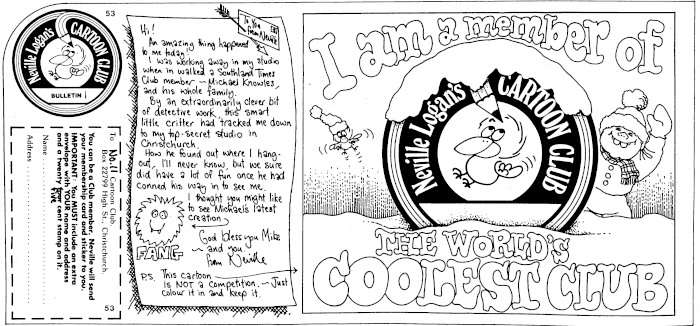 53
Neville Logan's
CARTOON CLUB
BULLETIN
To No. 11 Cartoon Club
Box 22799 High St., Christchurch.
You can be a Club member. Neville will send
your membership card and sticker to you.
IMPORTANT: You MUST include an extra
envelope with YOUR name and address
and a twenty five cent stamp on it.
Name
Address
53
To You
from Neville
Hi!
An amazing thing happened
to me today.
I was working away in my studio
when in walked a Southland Times
Club member — Michael Knowles,
and his whole family.
By an extraordinarily clever bit
of detective work, this smart
little critter had tracked me down
to my top-secret studio in
Christchurch.
How he found out where I hang-
out, I'll never know, but we sure
did have a lot of fun once he had
conned his way in to see me.
I thought you might like
to see Michael's latest
creation
FANG
God bless you Mike
— and you
from Neville
P.S. This cartoon
is NOT a competition. — Just
colour it in and keep it.
I am a member of
Neville Logan's
CARTOON CLUB
THE WORLD'S
COOLEST CLUB